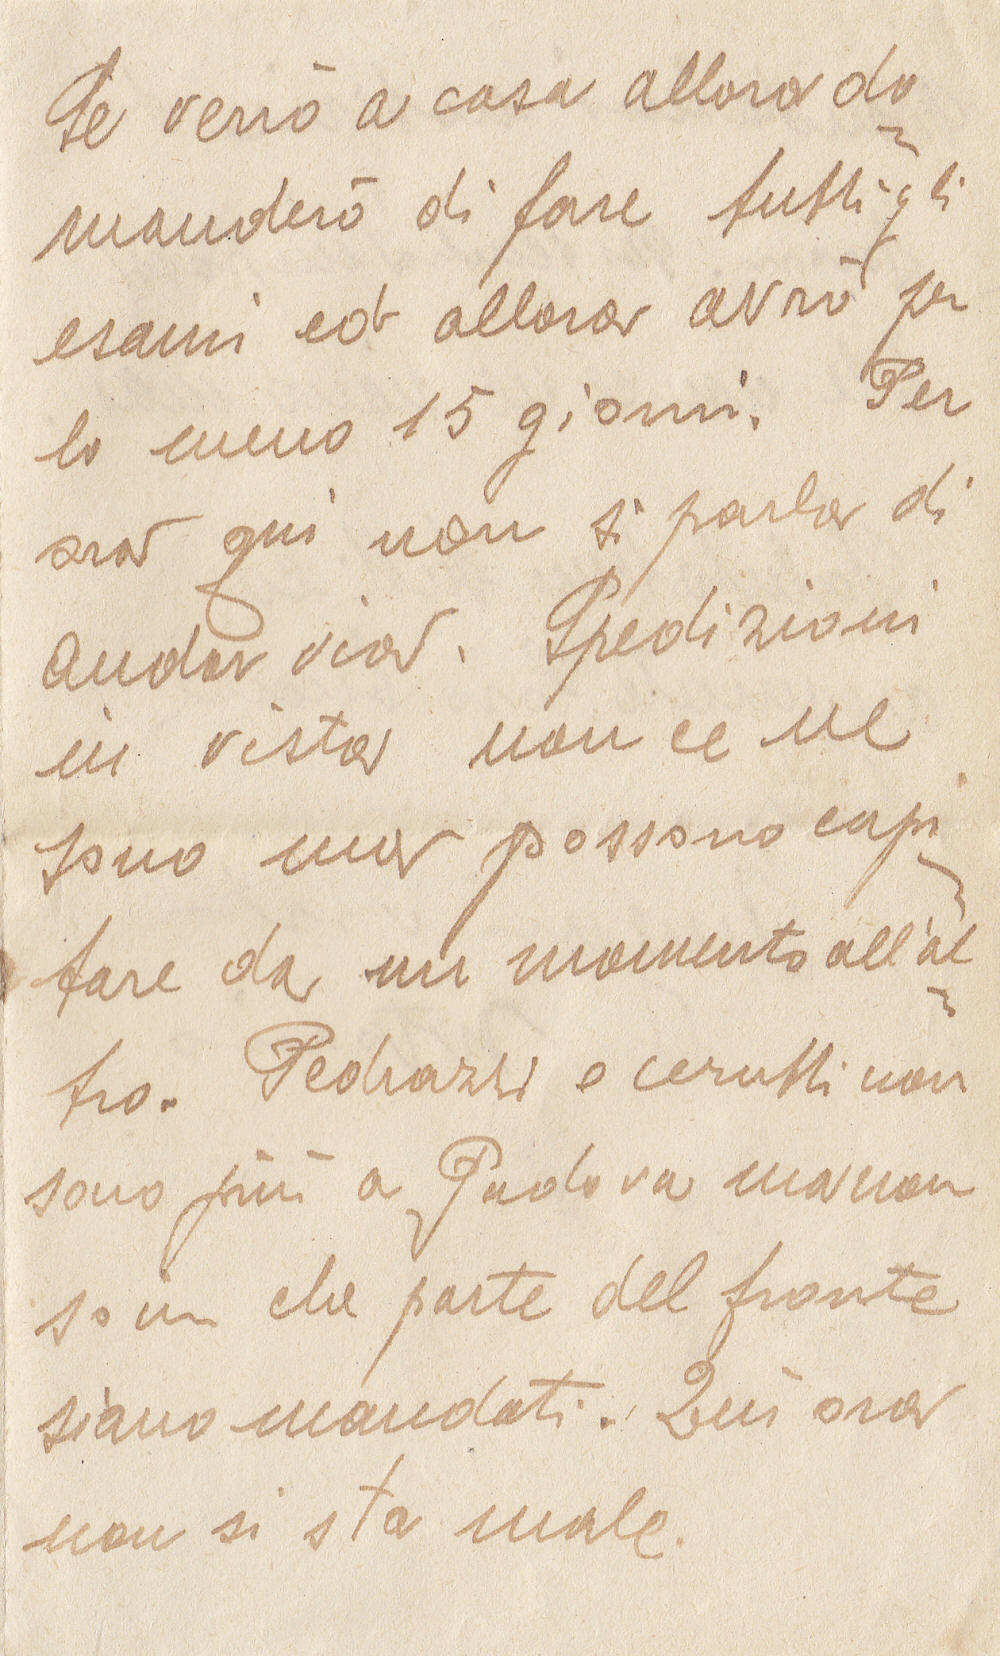 Se verrò a casa allora do
manderò di fare tutti gli
esami ed allora avrò per
lo meno 15 giorni. Per
ora qui non si parla di
andar via. Spedizioni
in vista non ce ne
sono ma possono capi
tare da un momento all'al
tro. Pedrazzi e Cerutti non
sono più a Padova ma non
so in che parte del fronte
siano mandati. Qui ora
non si sta male.